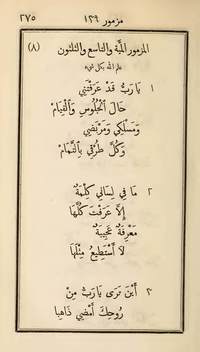 ٢٧٥ مزمور ١٣٩
(٨) المزمور المئة والتاسع والثلثون
علم الله بكل شيء
١ يَا رَبُّ قَدْ عَرَفْتَنِي
حَالَ ٱلْجُلُوسِ وَٱلْقِيَامْ
وَمَسْلَكِي وَمَرْبَضِي
وَكُلَّ طُرْقِي بِٱلتَّمَامْ
٢ مَا فِي لِسَانِي كِلْمَةٌ
إِلاَّ عَرَفْتَ كُلَّهَا
مَعْرِفَةٌ عَجِيبَةٌ
لاَ أَسْتَطِيعُ مِثْلَهَا
٣ أَيْنَ تَرَى يَا رَبُّ مِنْ
رُوحِكَ أَمْضِي ذَاهِبَا